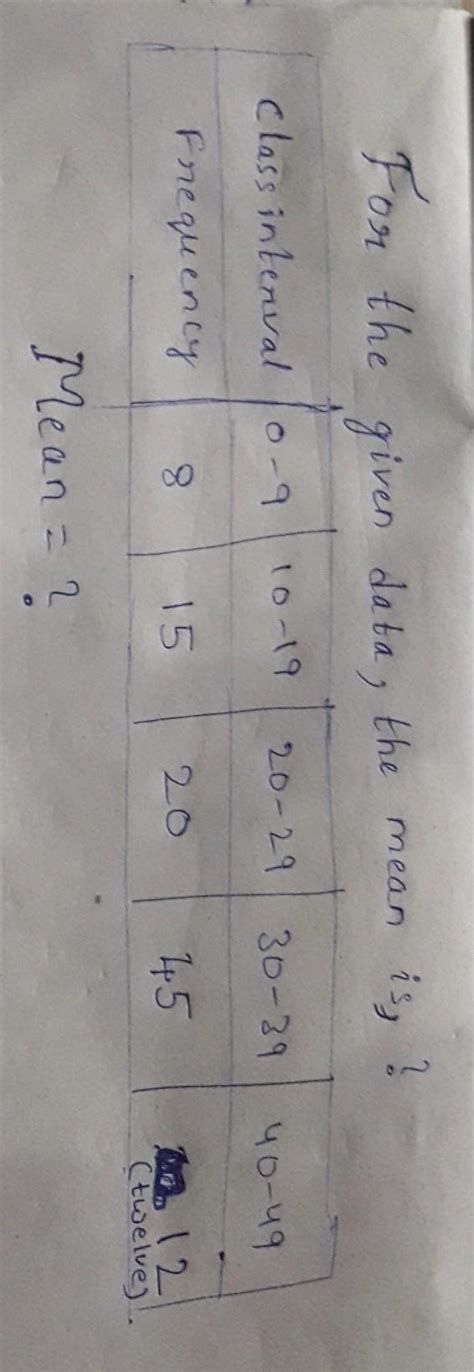 For the given data, the mean is, ?
Class interval 0-9 10-19 20-29 30-39 40-49
Frequency 8 15 20 45 12
(twelve)
Mean = ?